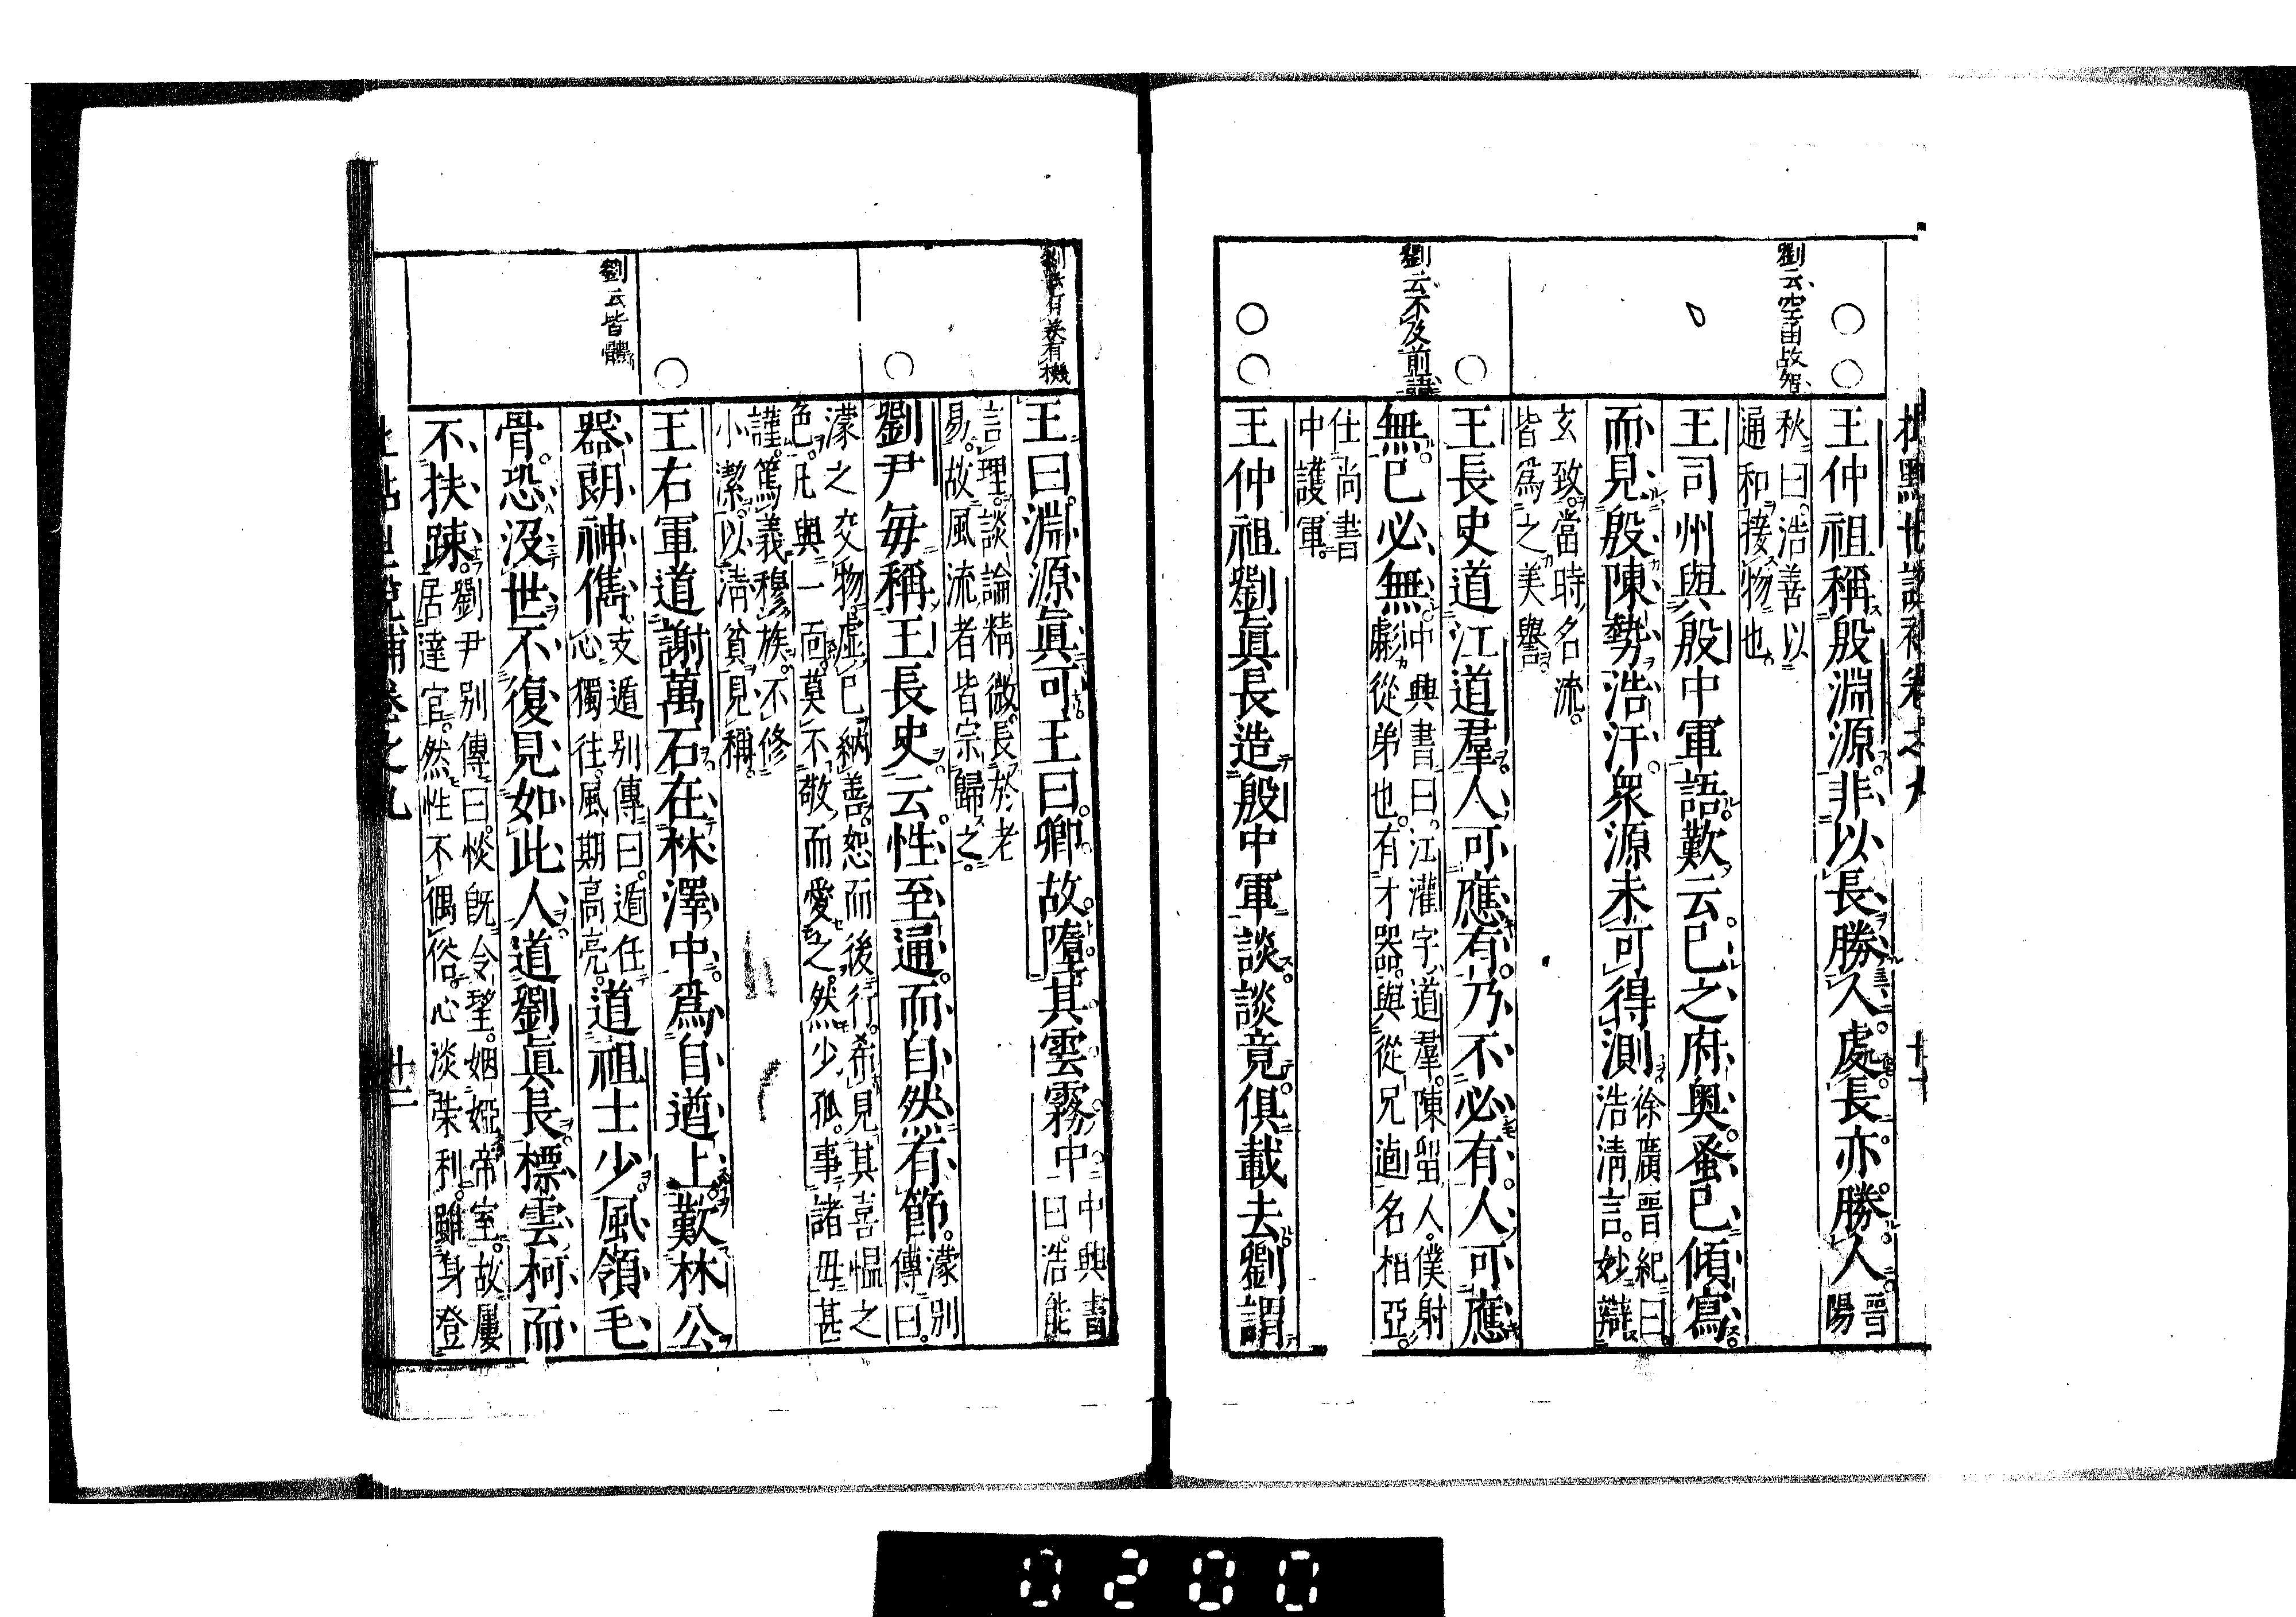 劉云空函故智
王仲祖稱殷淵源非以長勝人處長亦勝人晉陽
秋曰浩善以
通和接物也
王司州與殷中軍語歎云己之府奧蚤已傾寫
而見殷陳勢浩汗衆源未可得測徐廣晉紀曰浩清言妙辯
玄致當時名流
皆爲之美譽
劉云不及前語
王長史道江道羣人可應有乃不必有人可應
無己必無中興書曰江灌字道羣陳留人僕射虨從弟也有才器與從兄逌名相亞
仕尚書
中護軍
王仲祖劉眞長造殷中軍談談竟俱載去劉謂
王曰淵源眞可王曰卿故墮其雲霧中中興書曰浩能
言理談論精微長於老
易故風流者皆宗歸之
劉尹每稱王長史云性至通而自然有節濛別傳曰
濛之交物虛己納善恕而後行希見其喜慍之
色凡與一面莫不敬而愛之然少孤事諸母甚
謹篤義穆族不修
小潔以淸貧見稱
王右軍道謝萬石在林澤中爲自遒上歎林公
器朗神儁支遁別傳曰遁任心獨往風期高亮道祖士少風領毛
劉云皆體
骨恐沒世不復見如此人道劉眞長標雲柯而
不扶踈劉尹別傳曰惔旣令望姻婭帝室故屢居達官然性不偶俗心淡榮利雖身登
卷之九